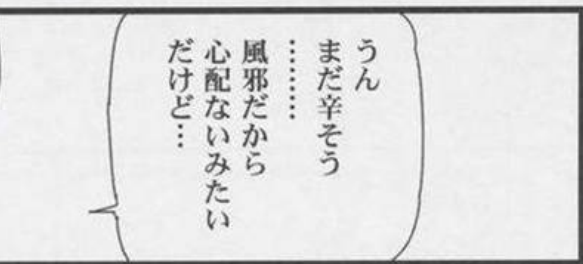 うん
まだ辛そう
………
風邪だから
心配ないみたい
だけど…